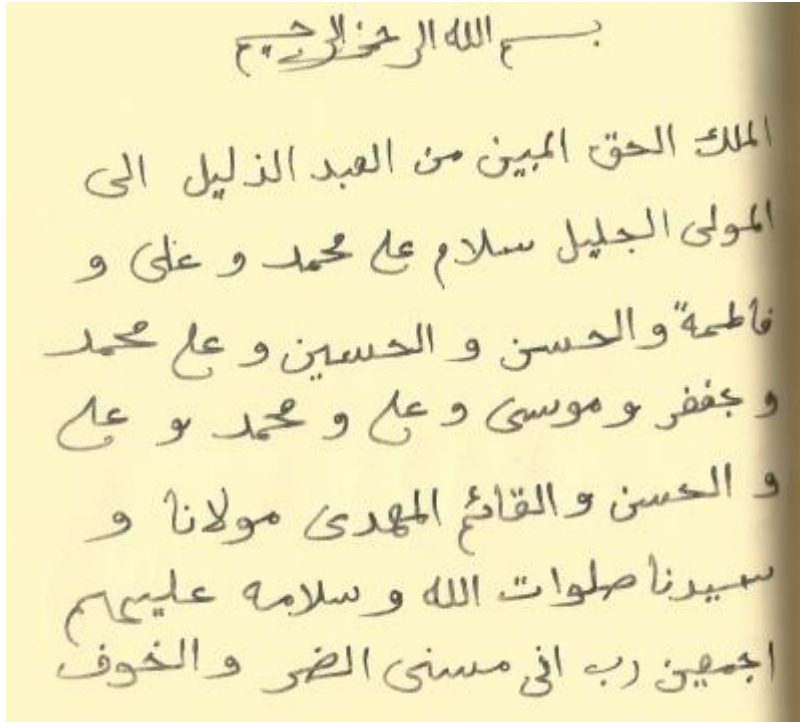 بسم الله الرحمن الرحیم
الملك الحق المبین من العبد الذلیل الی
المولی الجلیل سلام علی محمد و علی و
فاطمة و الحسن و الحسین و علی محمد
و جعفر و موسی و علی و محمد و علی
و الحسن و القائم المهدی مولانا و
سیدنا صلوات الله و سلامه علیهم
اجمعین رب انی مسنی الضر و الخوف